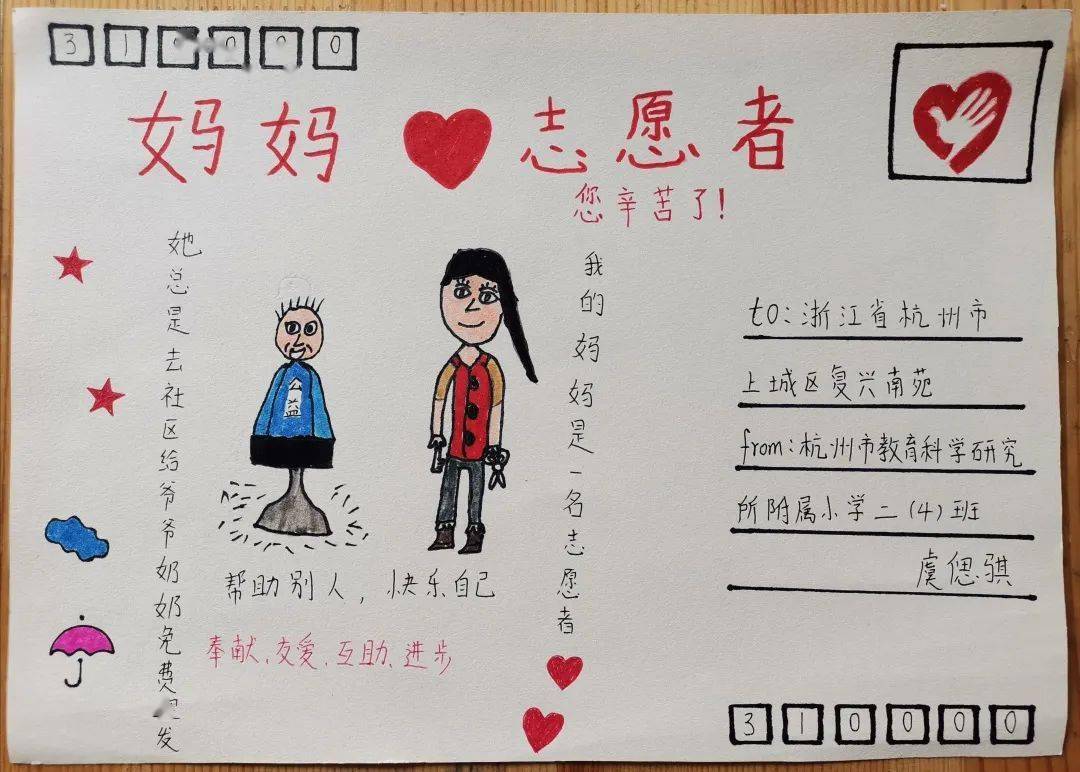 310000
妈妈志愿者
您辛苦了!
我的妈妈是一名志愿者
她总是去社区给爷爷奶奶免费发
公益
帮助别人，快乐自己
奉献、友爱、互助、进步
to:浙江省杭州市
上城区复兴南苑
from:杭州市教育科学研究
所附属小学二(4)班
虞偲骐
310000